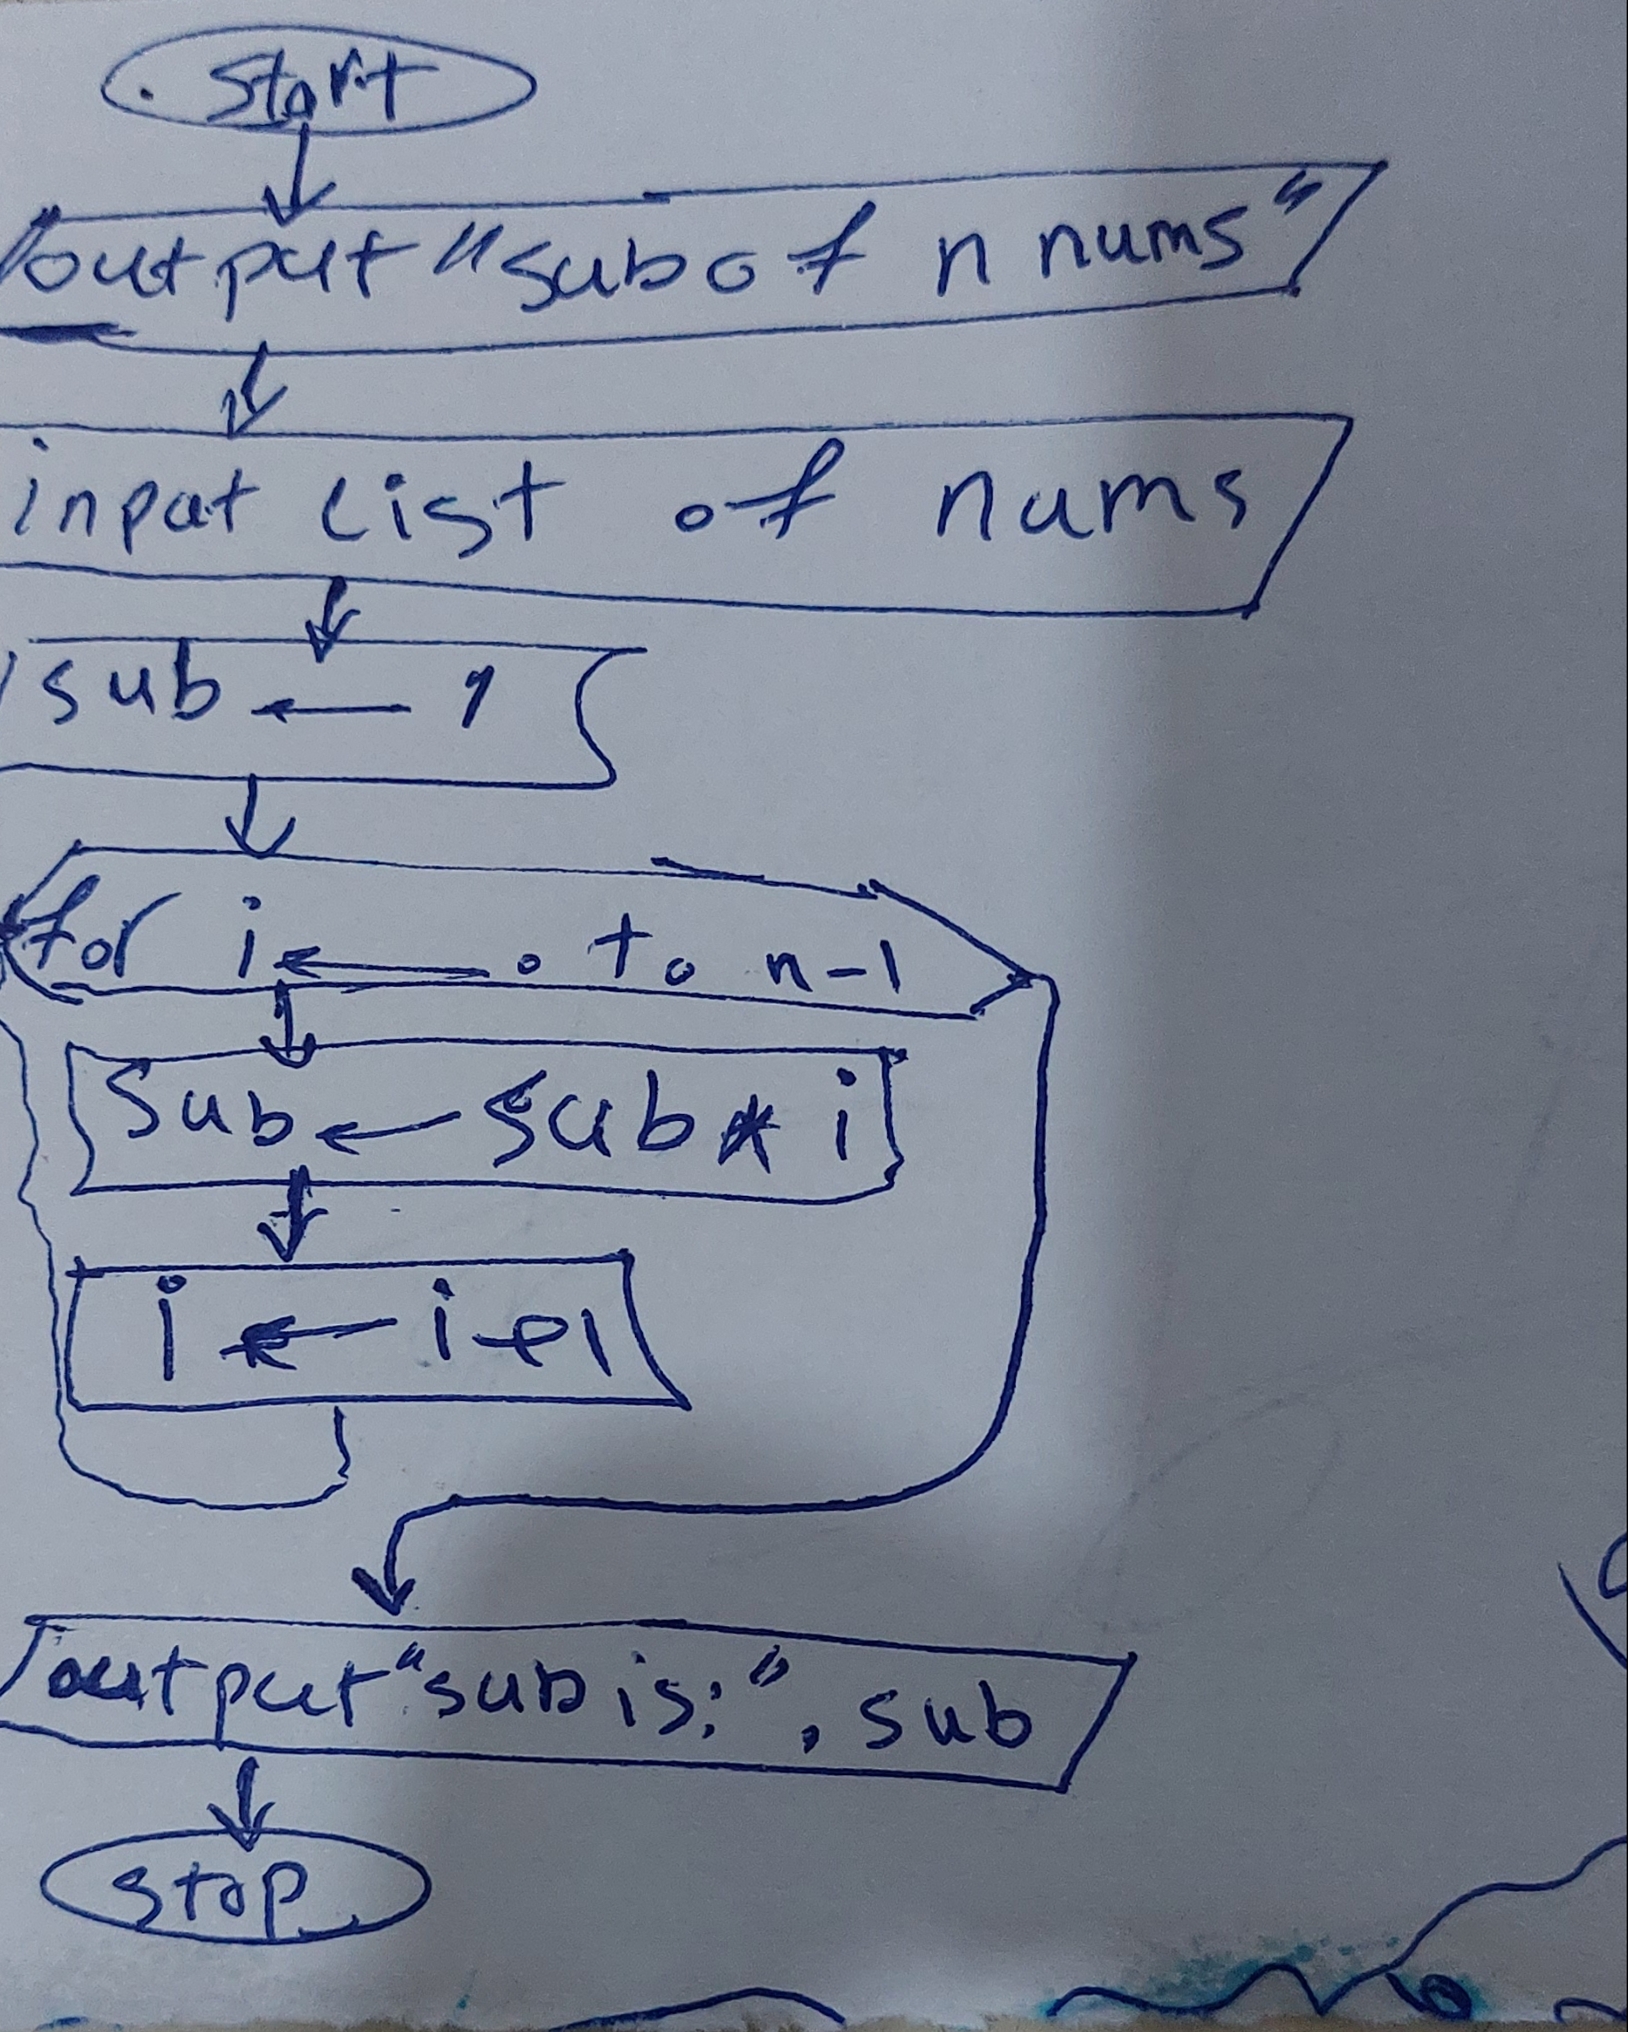 start
output "sub of n nums"
input list of nums
sub ← 1
for i ← 0 to n-1
sub ← sub * i
i ← i+1
output "sub is:", sub
stop